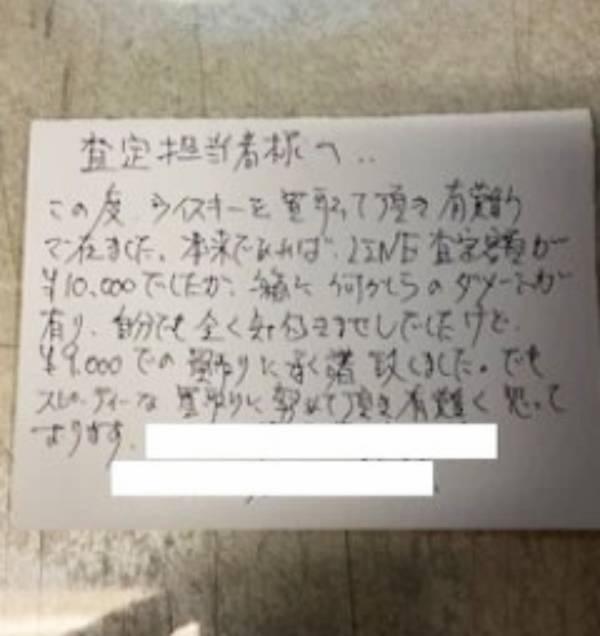 査定担当者様へ..
この度、ウイスキーを買取って頂き有難う
ございました。本来であれば、LINE査定額が
¥10,000でしたが、箱に何かしらのダメージが
有り、自分でも全く気付きませんでしたけど、
¥9,000での買取りに承諾致しました。でも
スピーディーな買取りに努めて頂き有難く思って
おります。